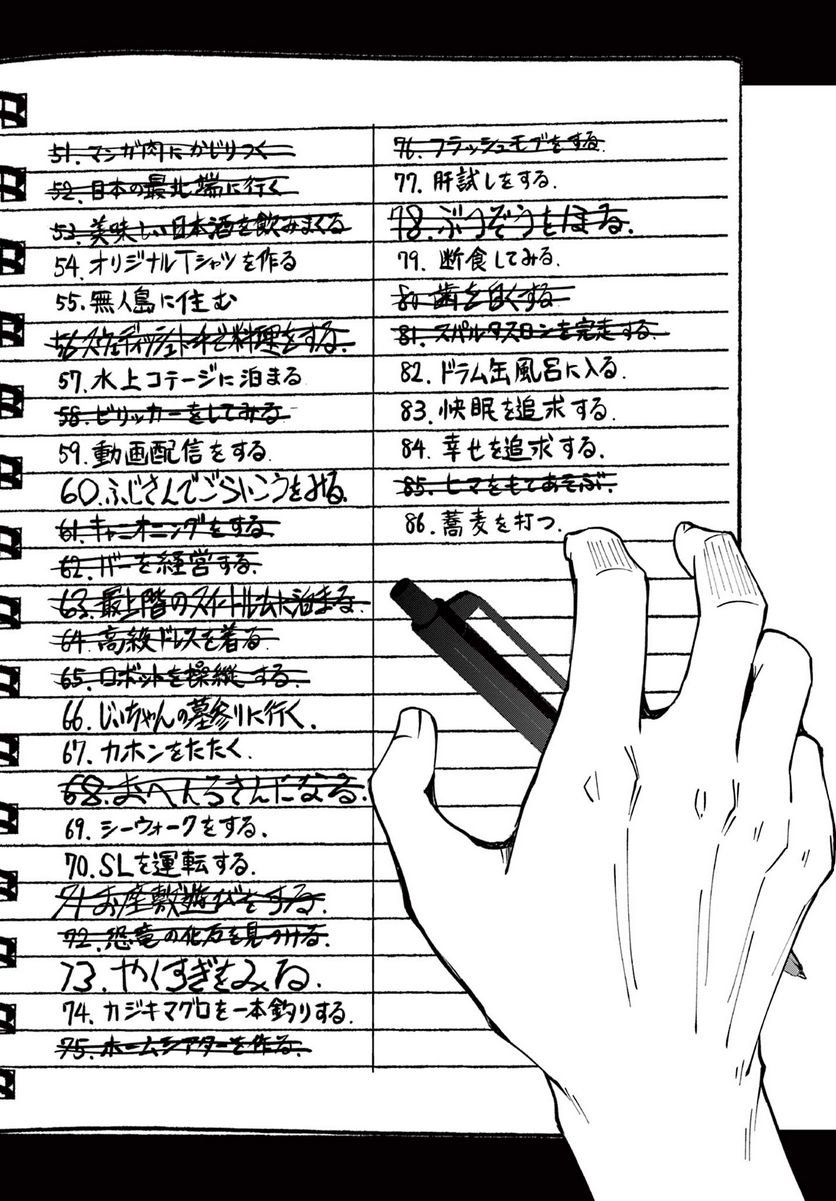 51. マンガ肉にかじりつく
52. 日本の最北端に行く
53. 美味しい日本酒を飲みまくる
54. オリジナルTシャツを作る
55. 無人島に住む
56. スウェディッシュトーチで料理をする.
57. 水上コテージに泊まる
58. ビリッカーをしてみる
59. 動画配信をする.
60. ふじさんでごらいこうをみる.
61. キャニオニングをする.
62. バーを経営する.
63. 最上階のスイートルームに泊まる.
64. 高級ドレスを着る
65. ロボットを操縦する.
66. じいちゃんの墓参りに行く.
67. カホンをたたく.
68. おへんろさんになる.
69. シーウォークをする.
70. SLを運転する.
71. お座敷遊びをする.
72. 恐竜の化石を見つける.
73. やくすぎをみる.
74. カジキマグロを一本釣りする.
75. ホームシアターを作る.
76. フラッシュモブをする.
77. 肝試しをする.
78. ぶつぞうをほる.
79. 断食してみる.
80. 歯を白くする
81. スパルタスロンを完走する.
82. ドラム缶風呂に入る.
83. 快眠を追求する.
84. 幸せを追求する.
85. ヒマをもてあそぶ.
86. 蕎麦を打つ.